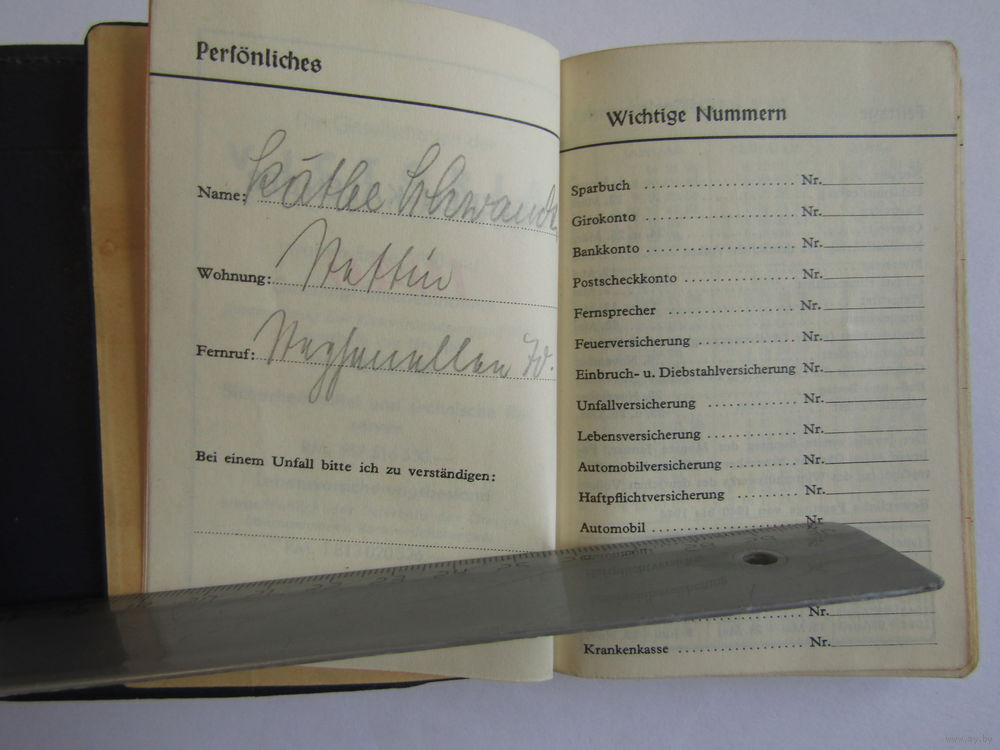 Persönliches
Name: Käthe Schwandt
Wohnung: Stettin
Fernruf:
Bei einem Unfall bitte ich zu verständigen:
Wichtige Nummern
Sparbuch .................... Nr.
Girokonto .................... Nr.
Bankkonto .................... Nr.
Postscheckkonto ............... Nr.
Fernsprecher ................. Nr.
Feuerversicherung ............. Nr.
Einbruch- u. Diebstahlversicherung Nr.
Unfallversicherung ............ Nr.
Lebensversicherung ............ Nr.
Automobilversicherung ......... Nr.
Haftpflichtversicherung ........ Nr.
Automobil .................... Nr.
Nr.
Krankenkasse ................. Nr.
www.ay.by